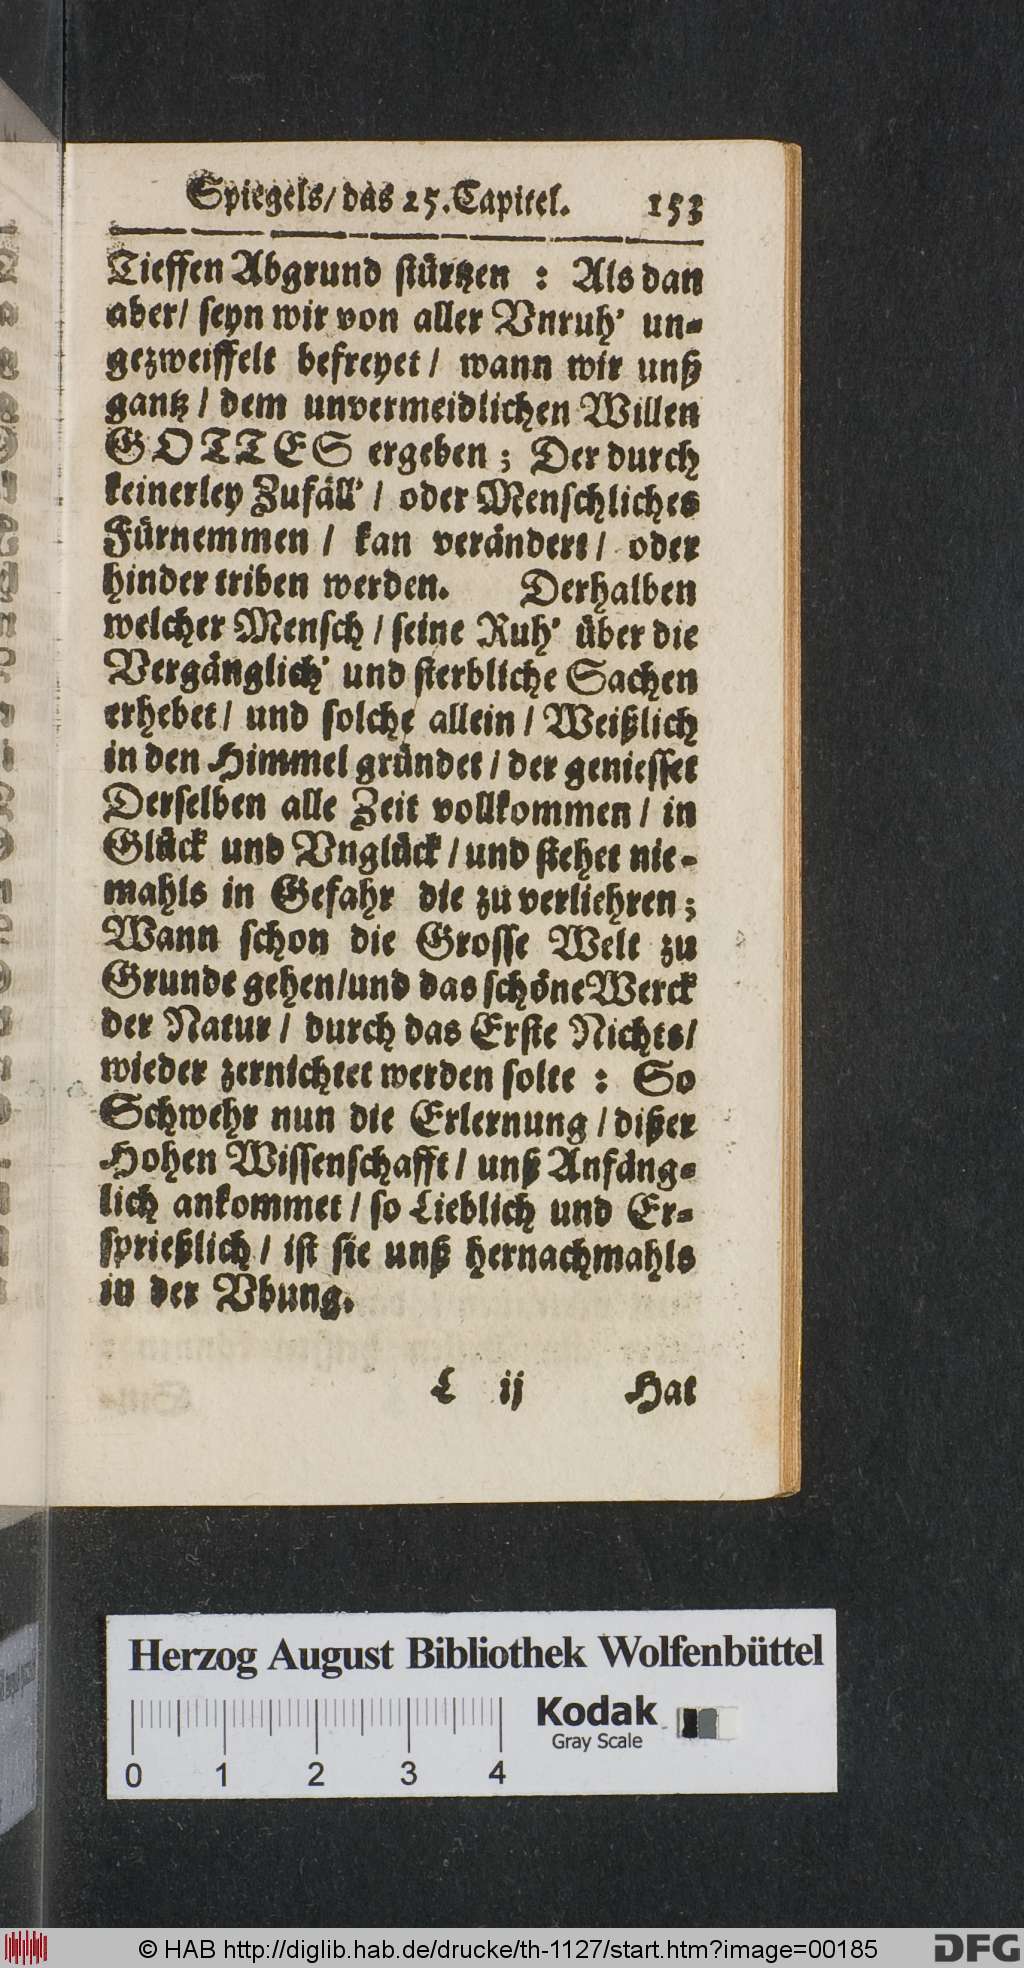 Spiegels/ das 25. Capitel. 153
Tieffen Abgrund stürtzen : Als dan
aber/ seyn wir von aller Vnruh' un-
gezweiffelt befreyet / wann wir unß
gantz / dem unvermeidlichen Willen
GOTTES ergeben ; Der durch
keinerley Zufäll' / oder Menschliches
Fürnemmen / kan verändert / oder
hinder triben werden. Derhalben
welcher Mensch / seine Ruh' über die
Vergänglich' und sterbliche Sachen
erhebet / und solche allein / Weißlich
in den Himmel gründet / der geniesset
Derselben alle Zeit vollkommen / in
Glück und Vnglück / und stehet nie-
mahls in Gefahr die zu verliehren ;
Wann schon die Grosse Welt zu
Grunde gehen/und das schöne Werck
der Natur / durch das Erste Nichts/
wieder zernichtet werden solte : So
Schwehr nun die Erlernung / dißer
Hohen Wissenschafft / unß Anfäng-
lich ankommet / so Lieblich und Er-
sprießlich / ist sie unß hernachmahls
in der Vbung.
L ij Hat
Herzog August Bibliothek Wolfenbüttel
Kodak
Gray Scale
0 1 2 3 4
© HAB http://diglib.hab.de/drucke/th-1127/start.htm?image=00185
DFG